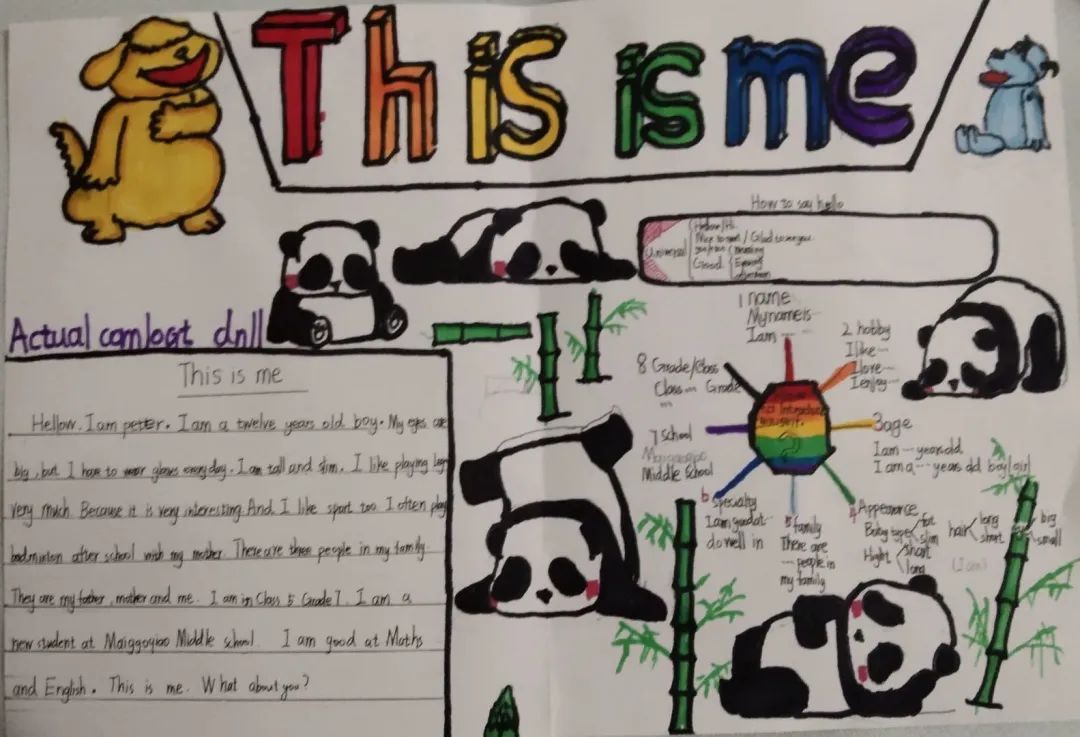 This is me
How to say hello
Universal
Hellow/Hi
Nice to meet / Glad to see you
Good
Morning
Evening
afternoon
Actual combat dnll
This is me
Hellow. I am petter. I am a twelve years old boy. My eyes are
big, but I have to wear glasses everyday. I am tall and slim. I like playing
very much. Because it is very interesting. And I like sport too I often play
badminton after school with my mother. There are three people in my family
They are my father, mother and me. I am in Class 5 Grade 7. I am a
new student at Maiggoyiao Middle school. I am good at Maths
and English. This is me. What about you?
1 name
My name is...
I am...
2 hobby
I like...
I love...
I enjoy...
3 age
I am ... year old
I am a ... years old boy/girl
4 Appearance
Body type
fat
slim
Hight
short
long
hair
long
short
big
small
(I am)
5 family
There are
... people in
my family
6 specialty
I am good at...
do well in
7 school
Middle School
8 Grade/Class
Class... Grade
...
introduce
yourself.